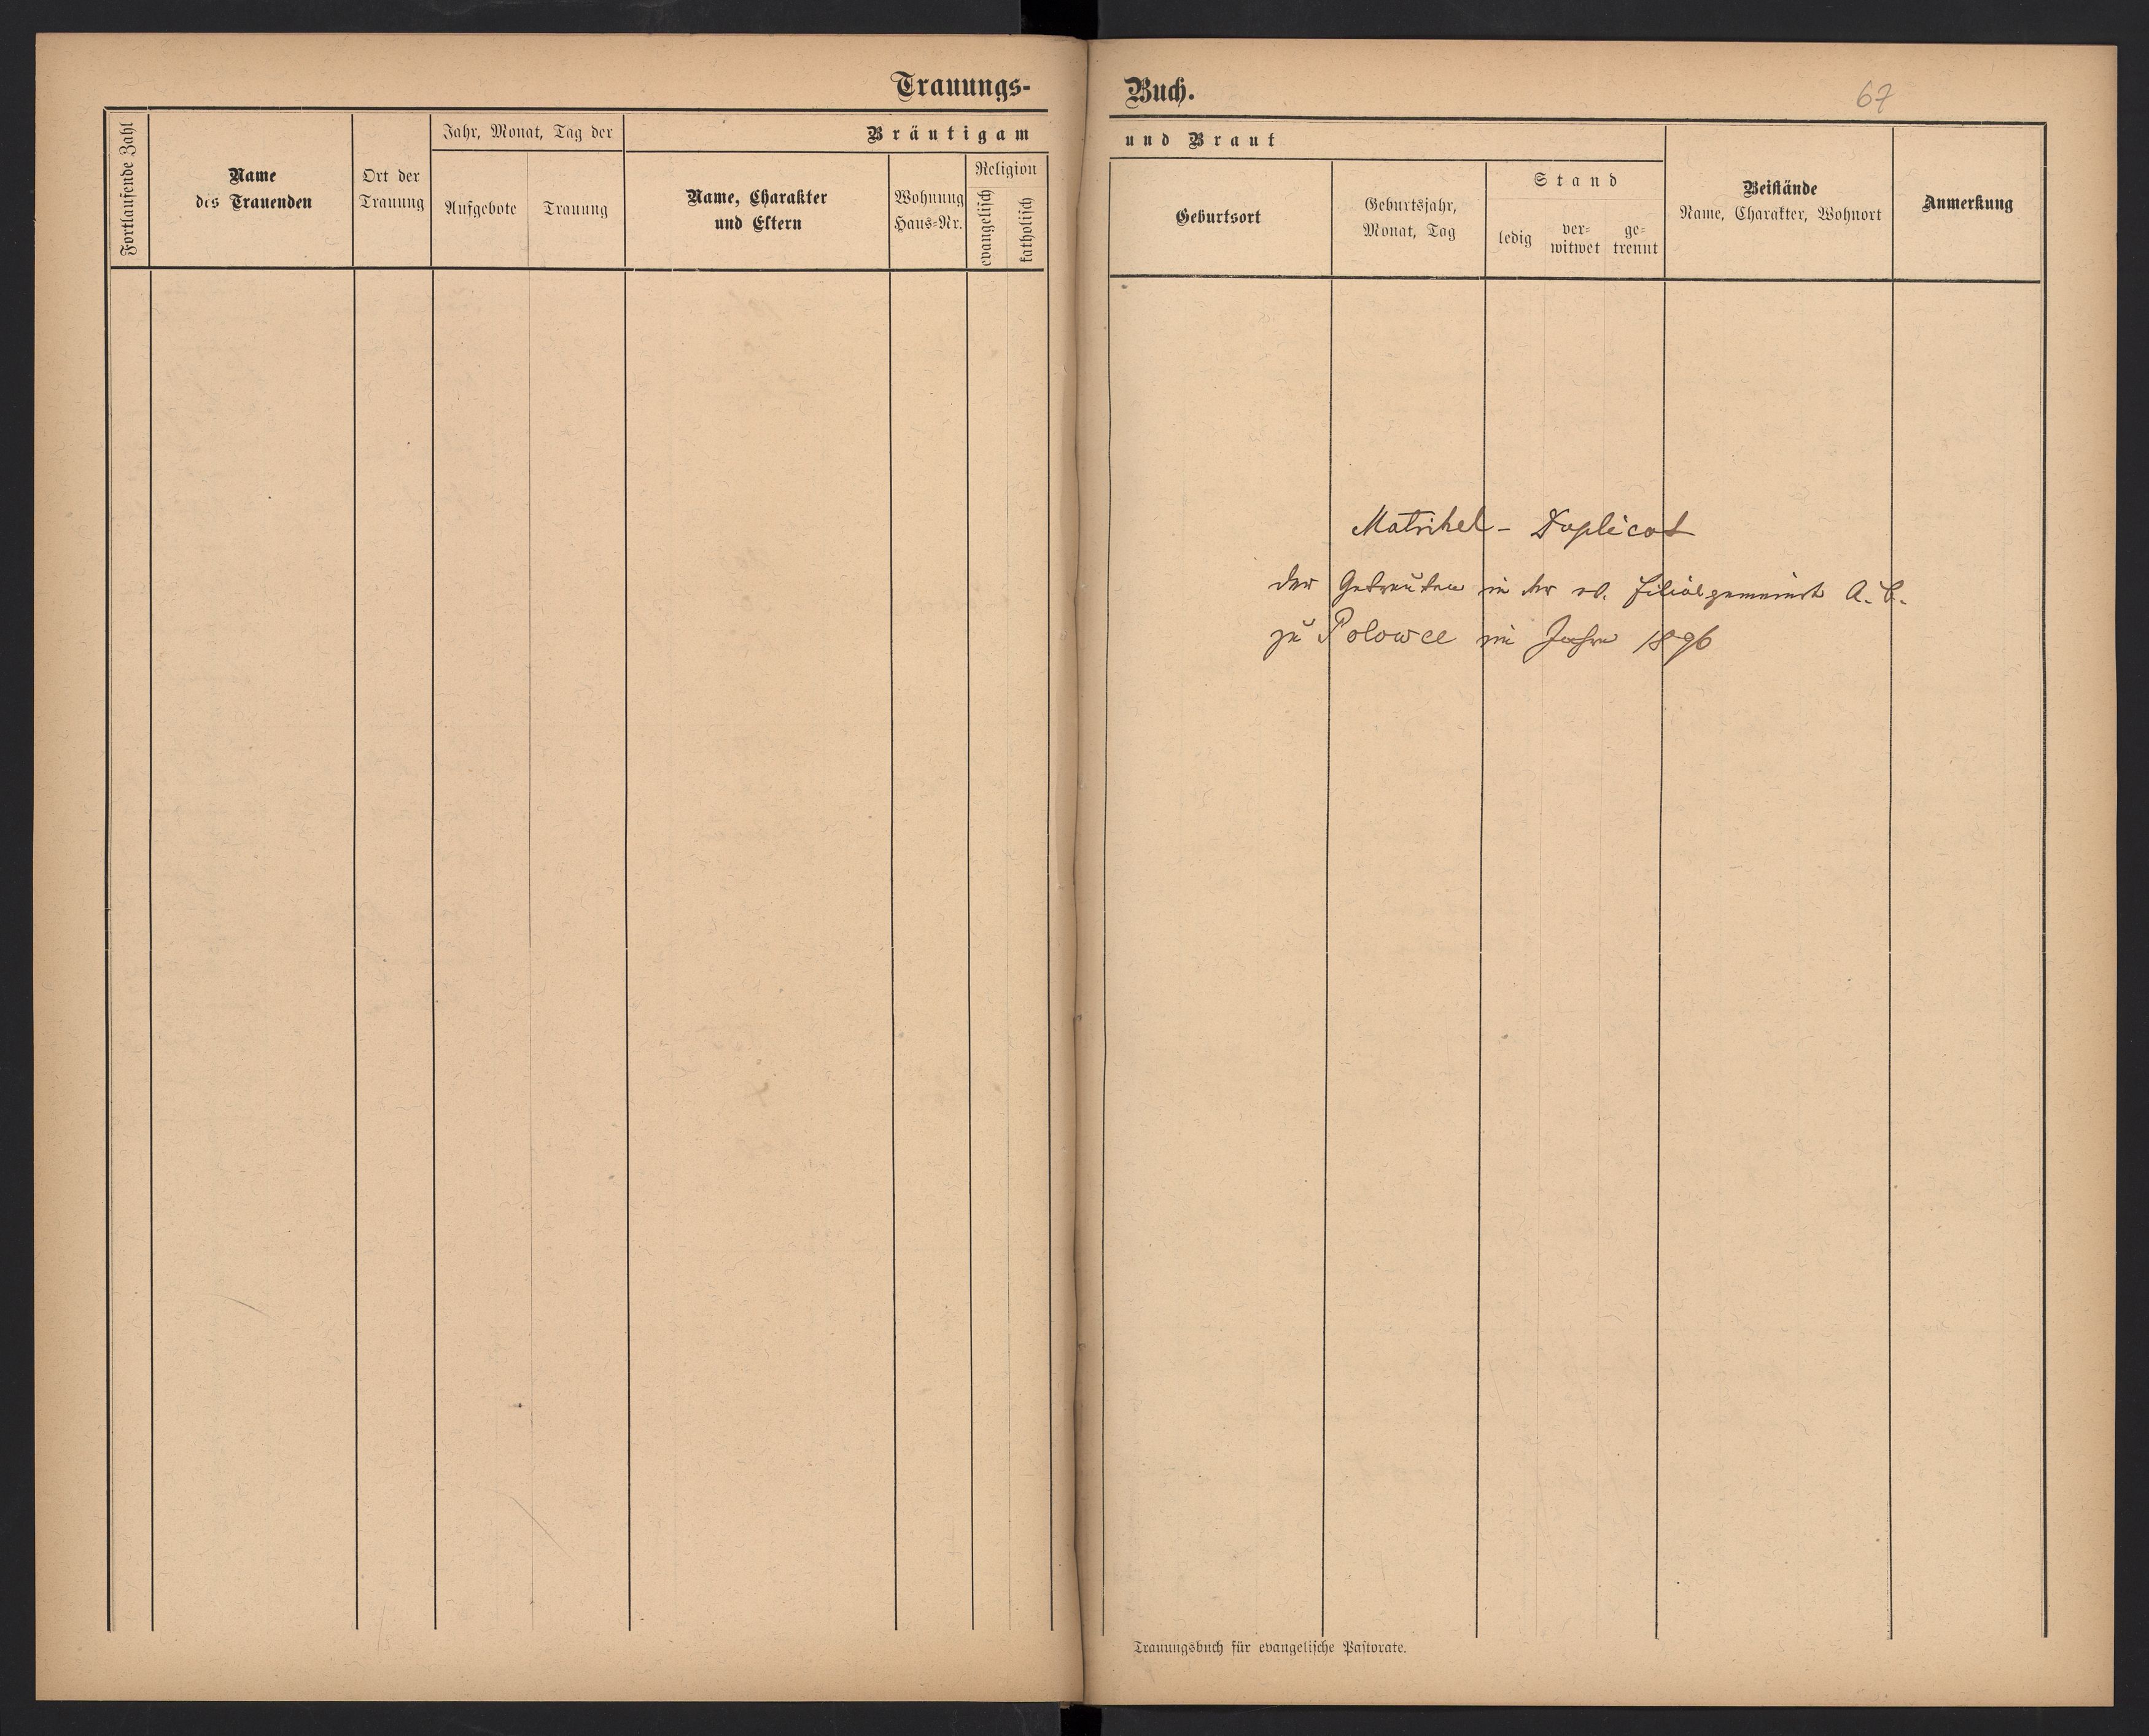 Trauungs-
Fortlaufende Zahl
Name
des Trauenden
Ort der
Trauung
Jahr, Monat, Tag der
Aufgebote
Trauung
Bräutigam
Name, Charakter
und Eltern
Wohnung
Haus-Nr.
Religion
evangelisch
katholisch
Buch.
67
und Braut
Geburtsort
Geburtsjahr,
Monat, Tag
Stand
ledig
ver-
witwet
ge-
trennt
Beistände
Name, Charakter, Wohnort
Anmerkung
Matrikel - Duplicat
der Getrauten in der ev. Filialgemeinde A. C.
zu Polowce im Jahre 1896
Trauungsbuch für evangelische Pastorate.